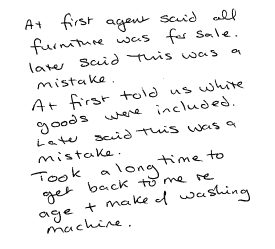 At first agent said all
furniture was for sale.
later said this was a
mistake.
At first told us white
goods were included.
Later said this was a
mistake.
Took a long time to
get back to me re
age + make of washing
machine.